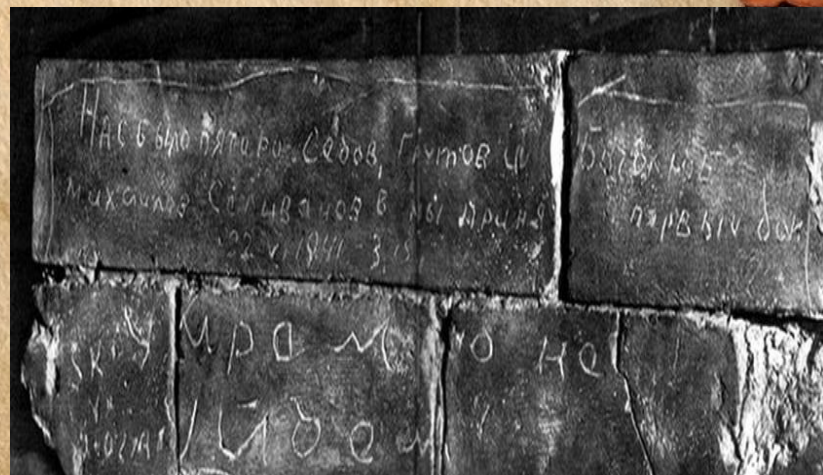 Нас было пятеро Седов, Грутов И Боголюб
Михайлов Селиванов В мы приня первый бой
22 VI 1941 - 3.15
Умрем но не
уйдем